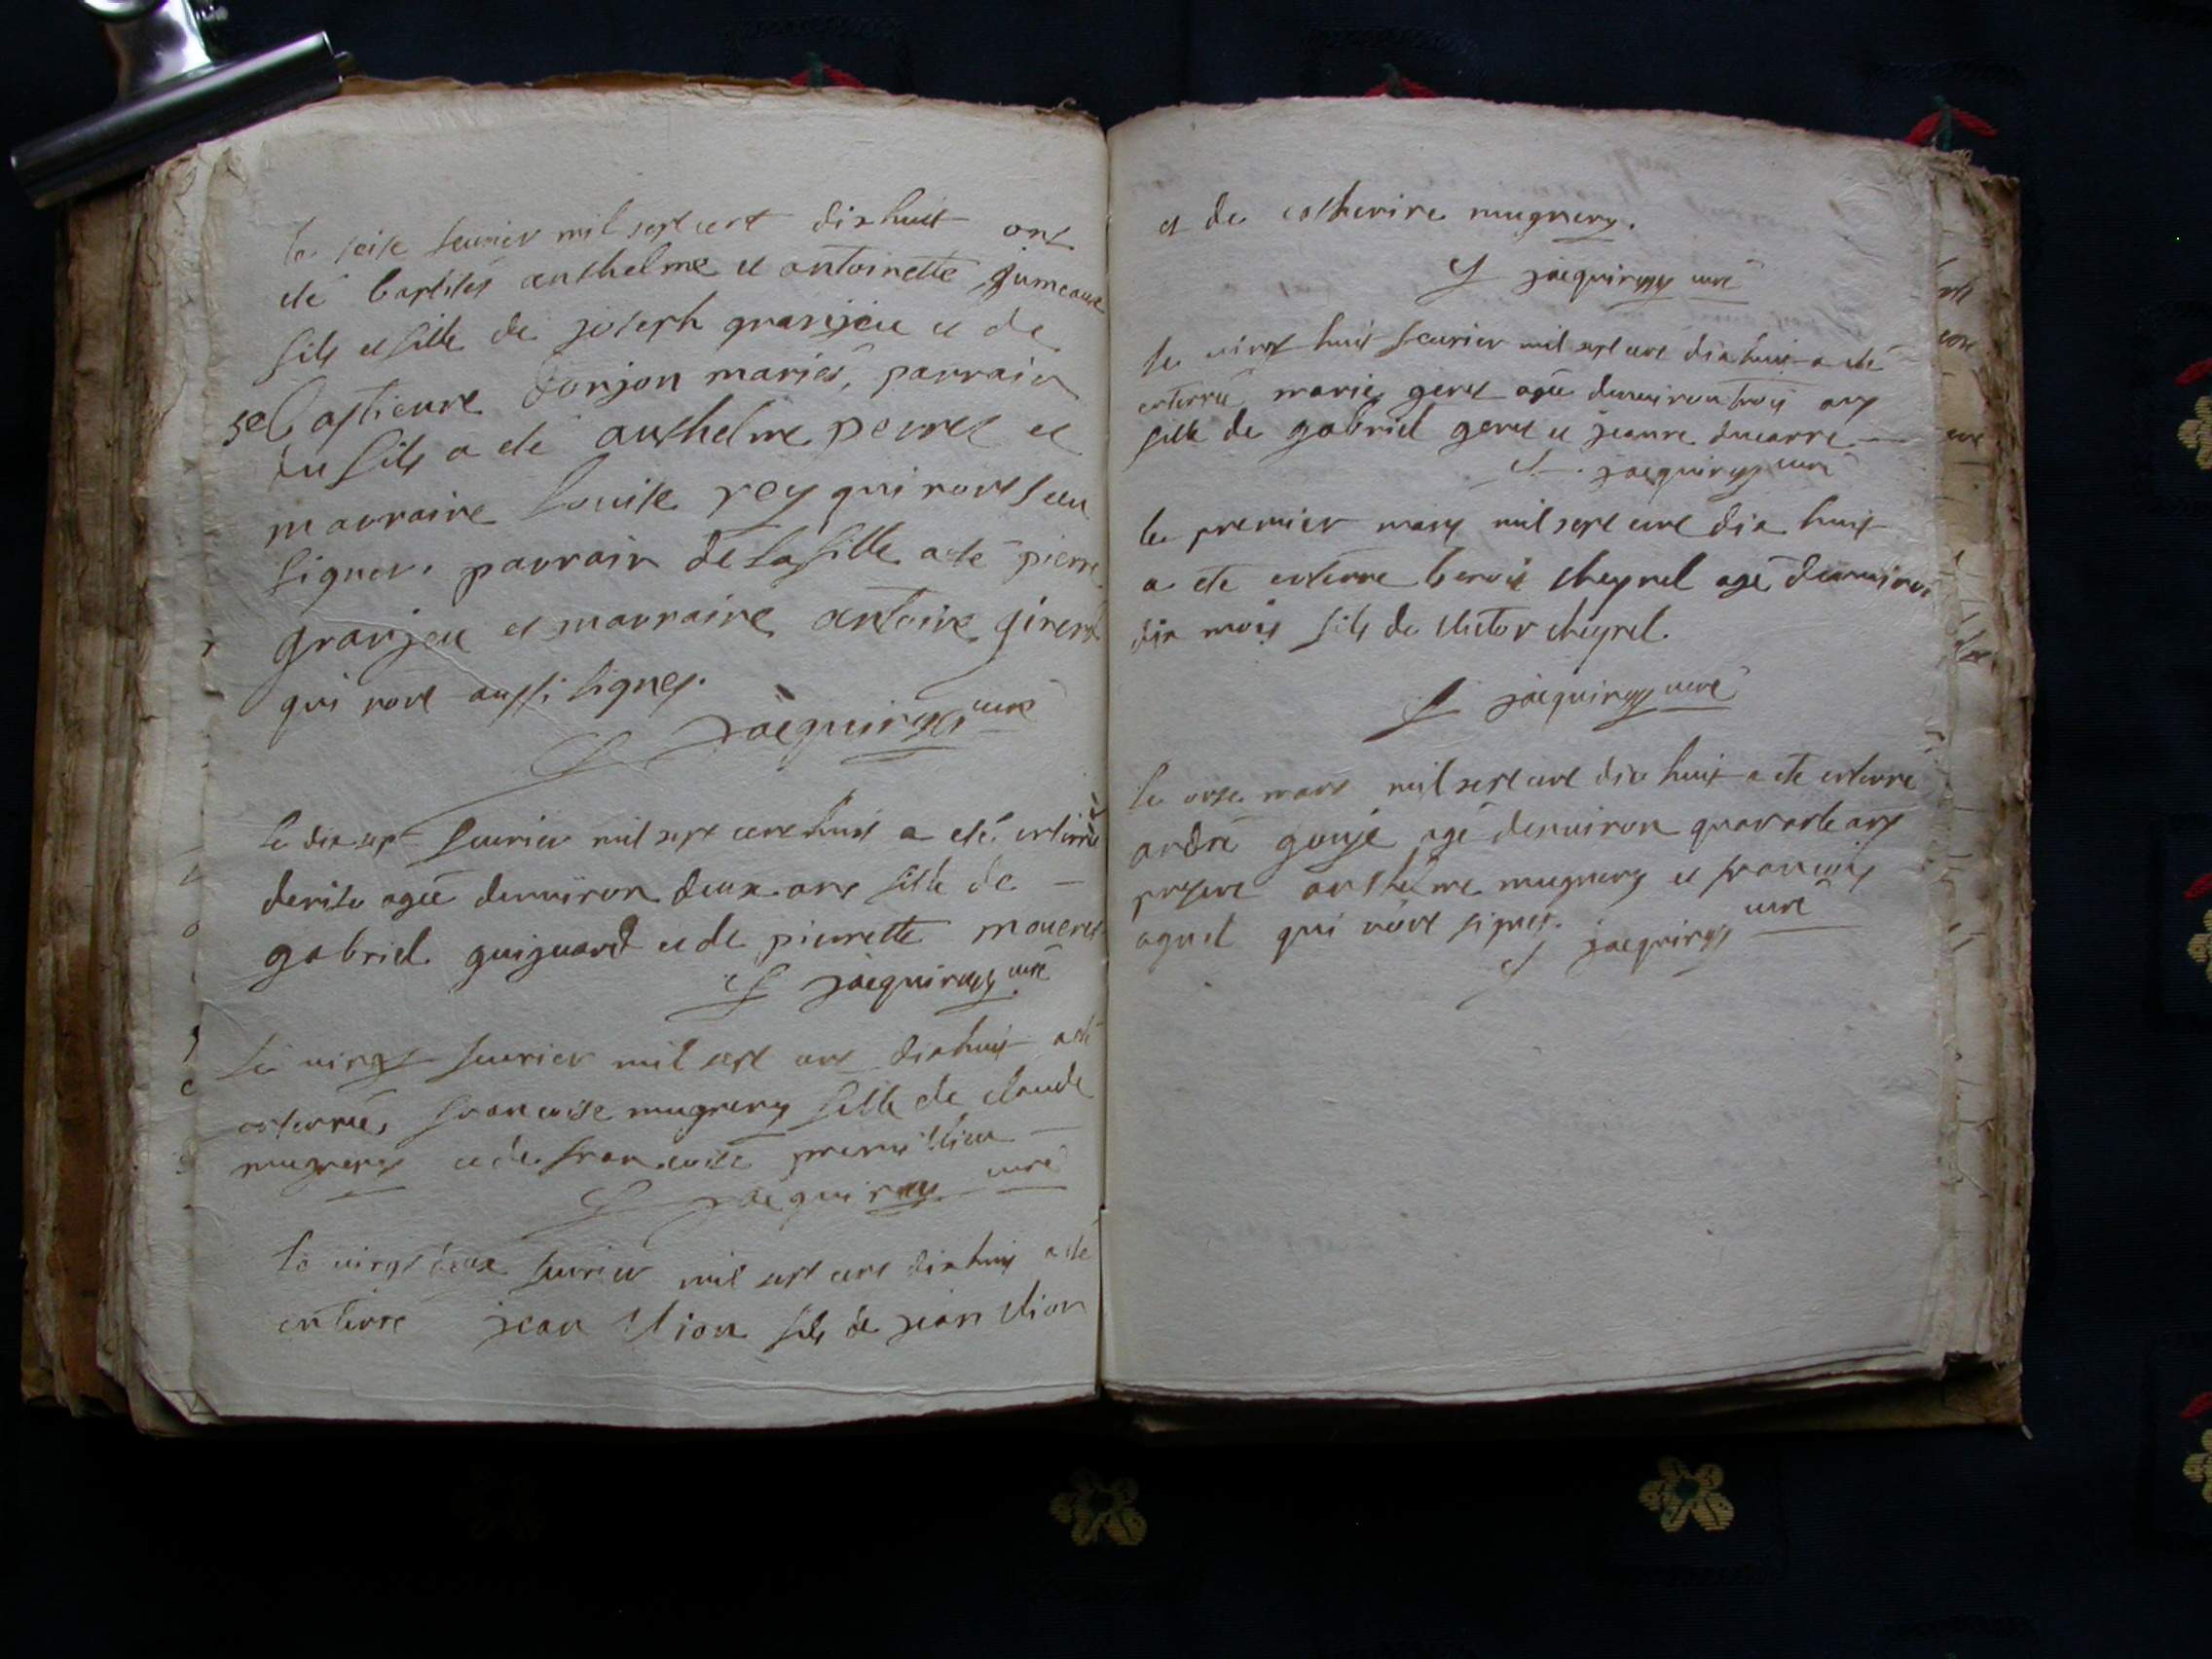 le seise feurier mil sept cent dixhuit ont
été baptises anthelme et antoinette jumeaux
fils et fille de joseph granjeu et de
sebastienne donjon mariés, parrain
du fils a eté anthelme perret et
marraine louise rey qui nont sceu
signer. parrain de la fille a eté pierre
granjeu et marraine antoine girert
qui nont aussi signes.
jacquines curé
le dix sept feurier mil sept cent huit a eté enterrée
denise agée denuiron deux ans fille de
gabriel guiguard et de pierrette
jacquines curé
le vingt feurier mil sept cent dixhuit a eté
enterrée, francoise mugnery fille de claude
mugnery et de francoise
jacquines curé
le vingt deux feurier mil sept cent dixhuit a eté
enterré jean Vion fils de jean Vion
et de catherine mugnery.
jacquines curé
le vingt huit feurier mil sept cent dixhuit a eté
enterrée marie genet agée denuiron trois ans
fille de gabriel genet et jeanne ducarre
jacquines curé
le premier mars mil sept cent dix huit
a eté enterre benoit cheynel agé denuiron
dix mois fils de victor cheynel.
jacquines curé
le onse mars mil sept cent dix huit a eté enterré
andré gouje agé denuiron quarante ans
present anthelme mugnery et francois
aguel qui nont signes.
jacquines curé